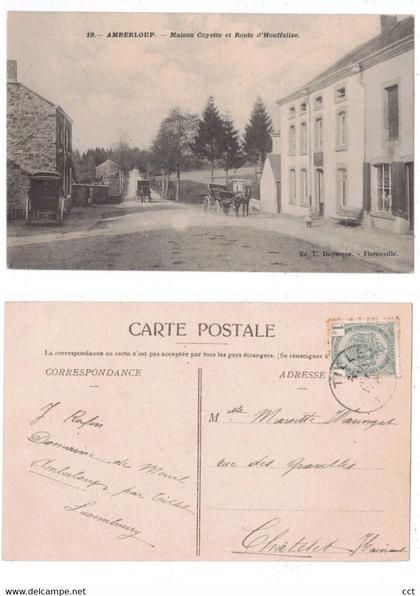 19. — AMBERLOUP. — Maison Coyette et Route d'Houffalize.
Ed. T. Duparque. - Florenville.
CARTE POSTALE
La correspondance au recto n'est pas acceptée par tous les pays étrangers. (Se renseigner
CORRESPONDANCE
ADRESSE
1c
TILLET
J Rafin
Domaine de Menil
Amberloup par Tillet
Luxembourg
Mlle Mariette
rue des Gravelles
Châtelet Hainaut
cct